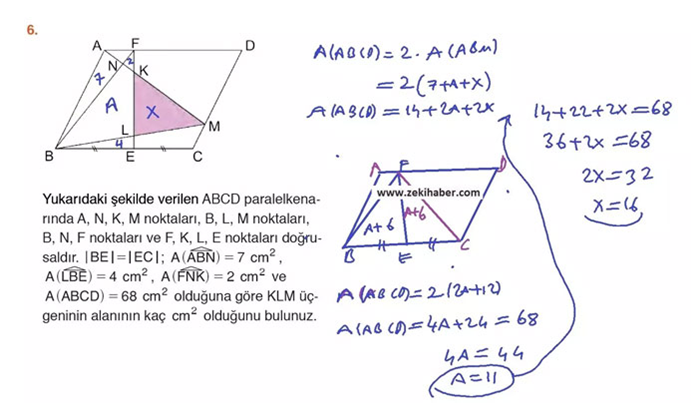 6.
A F D
N 2 K
7
A X
L M
4
B E C
Yukarıdaki şekilde verilen ABCD paralelkena-
rında A, N, K, M noktaları, B, L, M noktaları,
B, N, F noktaları ve F, K, L, E noktaları doğru-
saldır. |BE|=|EC|; A(ABN)=7 cm²,
A(LBE)=4 cm², A(FNK)=2 cm² ve
A(ABCD)=68 cm² olduğuna göre KLM üç-
geninin alanının kaç cm² olduğunu bulunuz.
A(ABCD)=2.A(ABM)
=2(7+A+X)
A(ABCD)=14+2A+2X
14+22+2X=68
36+2X=68
2X=32
X=16
A F D
www.zekihaber.com
A+6 A+6
B E C
A(ABCD)=2(2A+12)
A(ABCD)=4A+24=68
4A=44
A=11